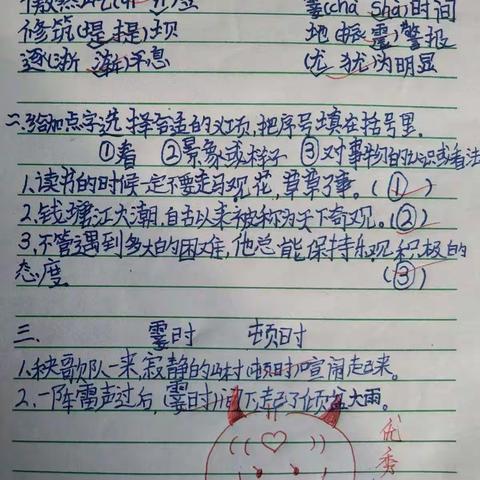 霎(chà shà)时间
修筑(堤 提)坝
地(振 震)警报
逐(浙 渐)平息
(尤 犹)为明显
二、给加点字选择合适的义项,把序号填在括号里。
①看 ②景象或样子 ③对事物的认识或看法
1.读书的时候一定不要走马观花,草草了事。(①)
2.钱塘江大潮,自古以来被称为天下奇观。(②)
3.不管遇到多大的困难,他总能保持乐观积极的
态度。 (③)
三、 霎时 顿时
1.秧歌队一来,寂静的山村(顿时)喧闹起来。
2.一阵雷声过后,(霎时)间下起了倾盆大雨。
优秀